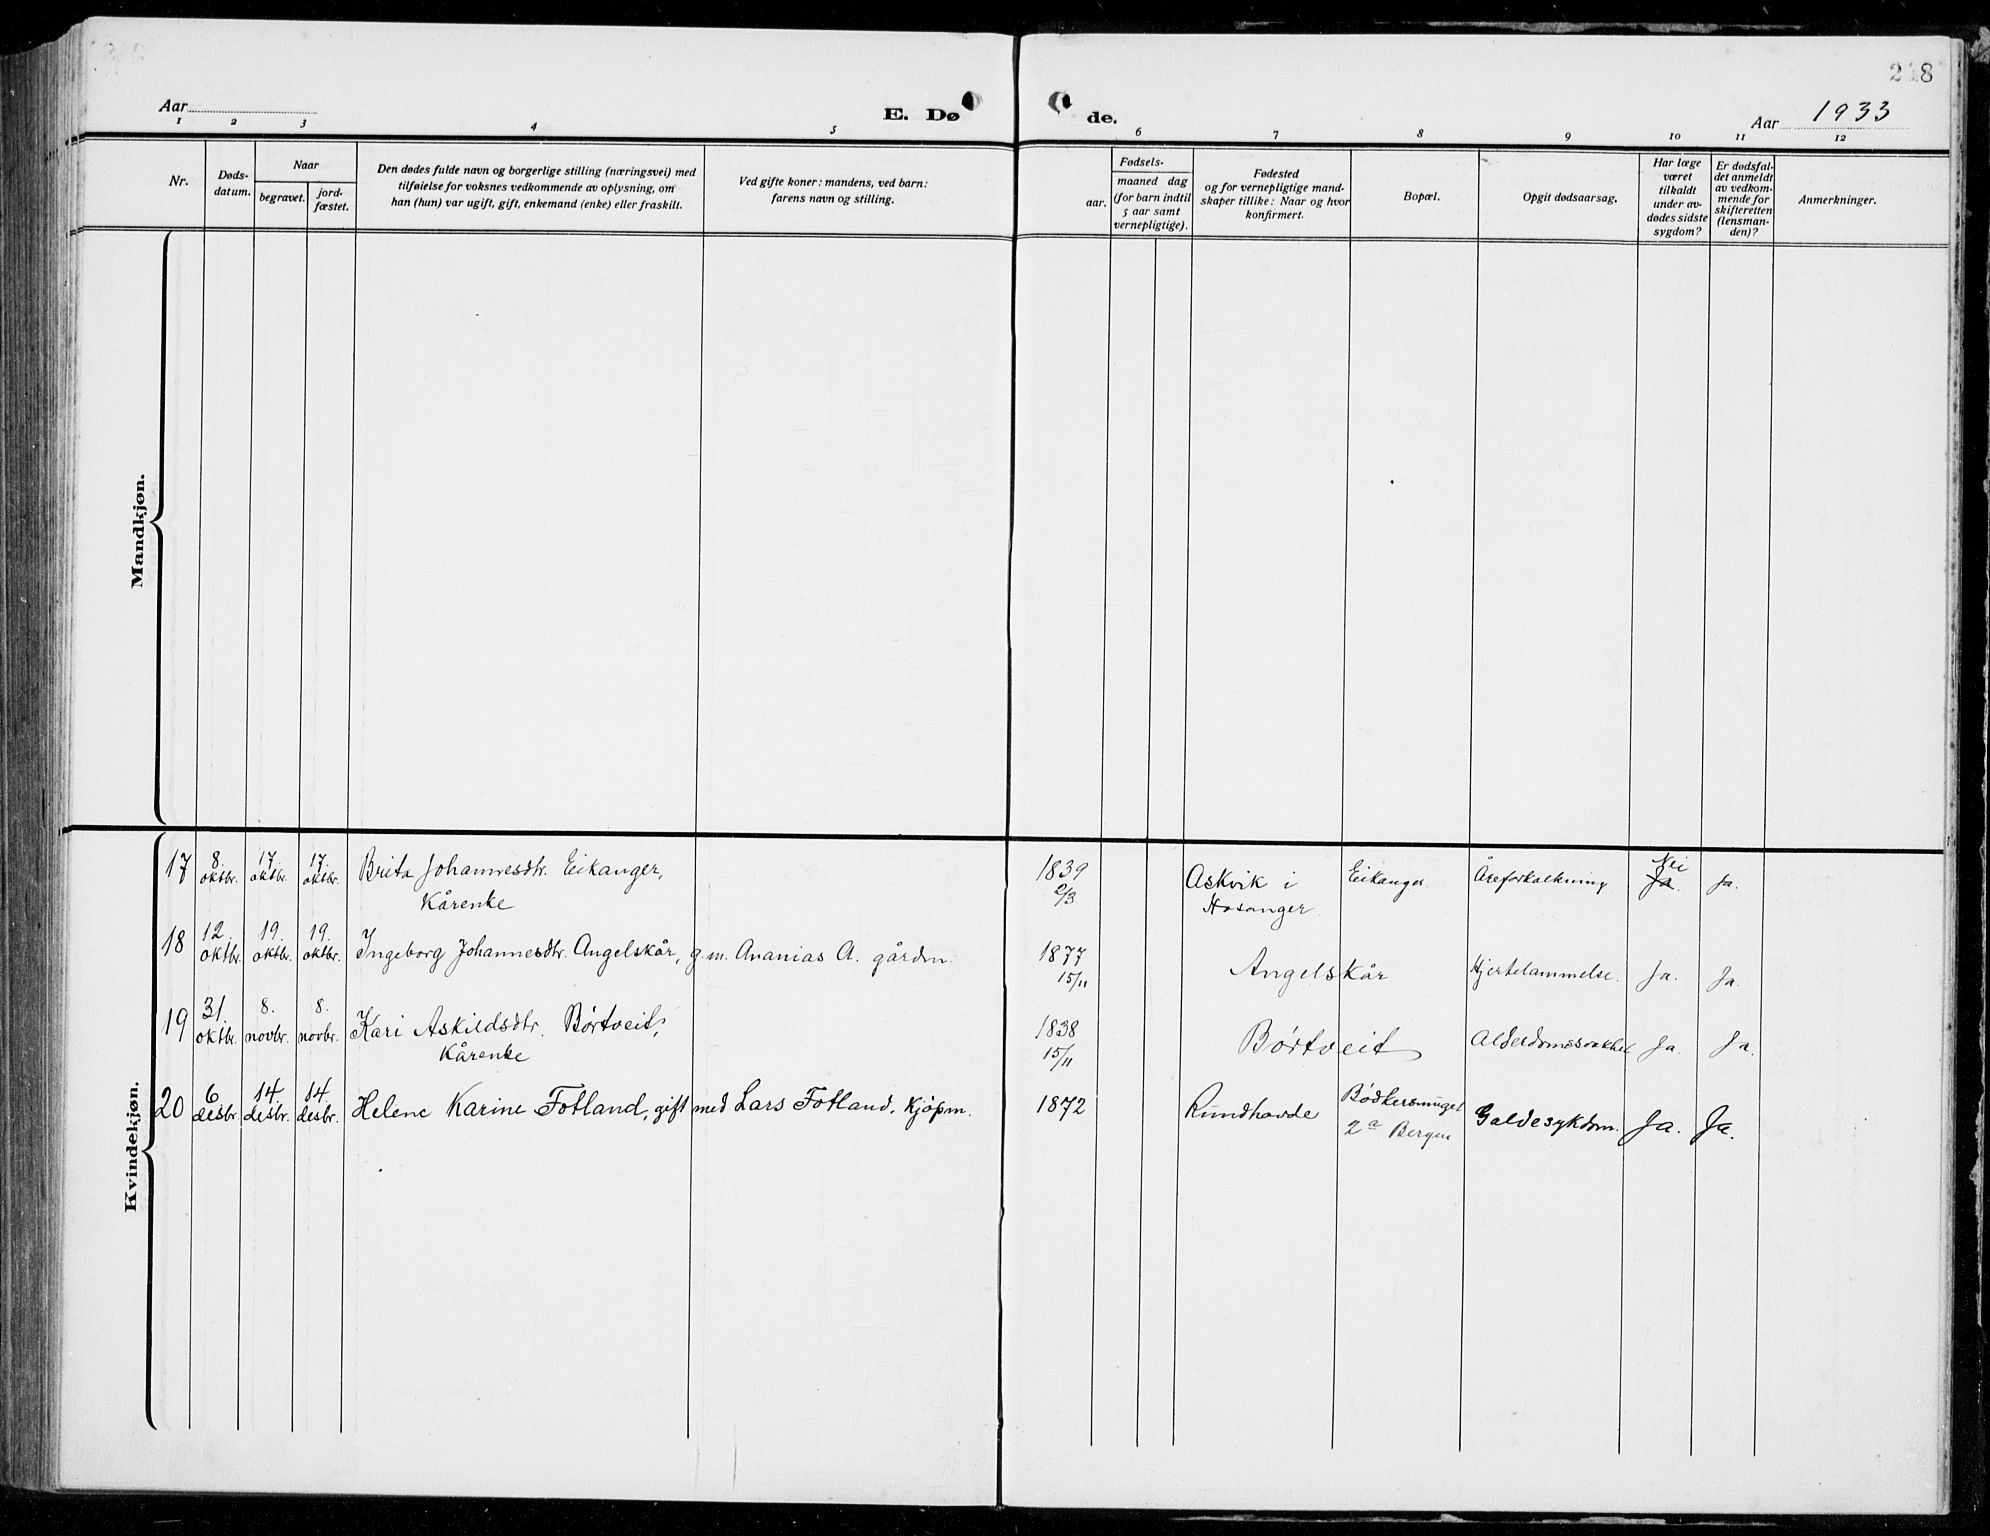 218
Aar
E. Dø
de.
Aar 1933
1 2 3 4 5 6 7 8 9 10 11 12
Nr.
Døds-
datum.
Naar
begravet.
jord-
fæstet.
Den dødes fulde navn og borgerlige stilling (næringsvei) med
tilføielse for voksnes vedkommende av oplysning, om
han (hun) var ugift, gift, enkemand (enke) eller fraskilt.
Ved gifte koner: mandens, ved barn:
farens navn og stilling.
Fødsels-
aar.
maaned dag
(for barn indtil
5 aar samt
vernepligtige).
Fødested
og for vernepligtige mand-
skaper tillike: Naar og hvor
konfirmert.
Bopæl.
Opgit dødsaarsag.
Har læge
været
tilkaldt
under av-
dødes sidste
sygdom?
Er dødsfal-
det anmeldt
av vedkom-
mende for
skifteretten
(lensman-
den)?
Anmerkninger.
Mandkjøn.
Kvindekjøn.
17 8. oktbr. 17. oktbr. 17. oktbr. Brita Johannesdtr. Eikanger, 1839 Askvik i Eikanger. Åreforkalkning Nei Ja. Ja.
Kårenke 2/3 Hosanger.
18 12. oktbr. 19. oktbr. 19. oktbr. Ingeborg Johannesdtr. Angelskår, g.m. Ananias A. gårdm. 1877 Angelskår Hjertelammelse. Ja. Ja.
15/11
19 31. oktbr. 8. novbr. 8. novbr. Kari Askildsdtr. Børtveit, 1838 Børtveit Alderdomssvakhet Ja. Ja.
Kårenke 15/11
20 6. desbr. 14. desbr. 14. desbr. Helene Karine Fotland, gift med Lars Fotland, Kjøpm. 1872 Rundhovde Bødkersmuget Galdesykdom. Ja. Ja.
2a Bergen